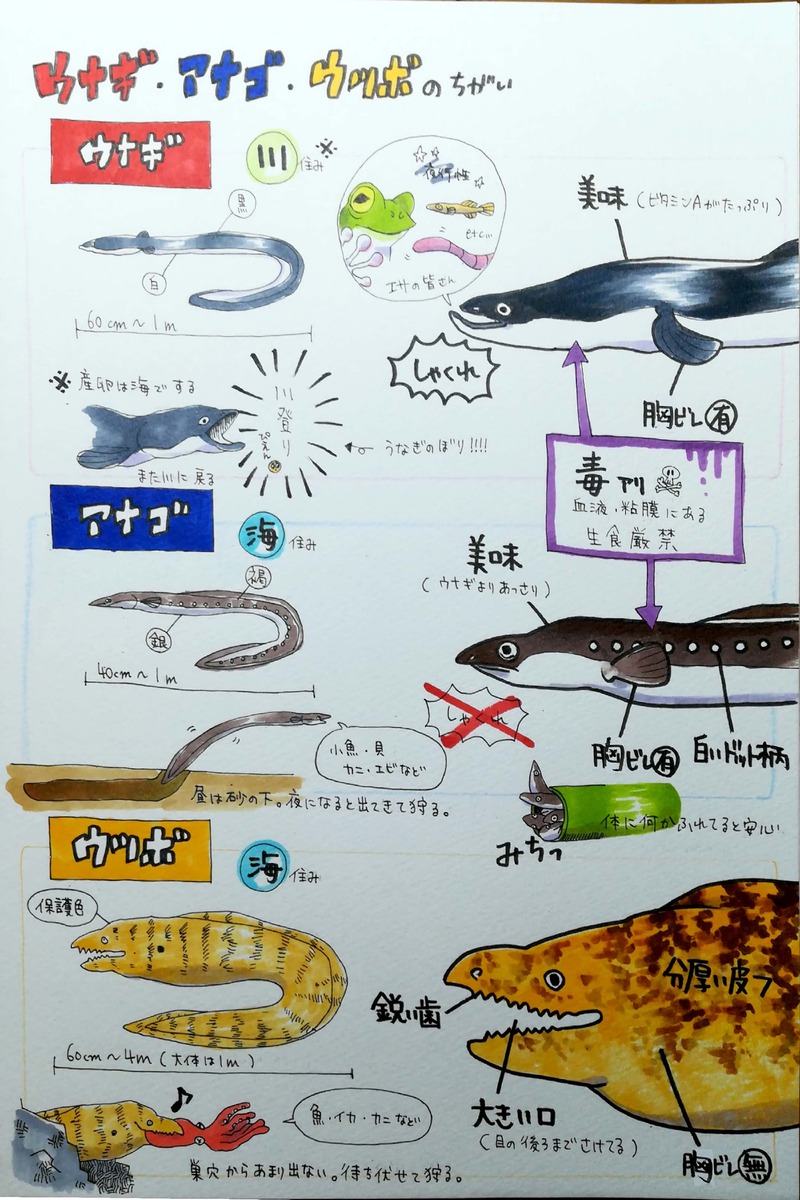 ウナギ・アナゴ・ウツボのちがい
ウナギ
川住み※
黒
白
60cm〜1m
夜行性
etc...
エサの皆さん
美味(ビタミンAがたっぷり)
しゃくれ
胸ビレ有
※産卵は海でする
また川に戻る
川登り
ぴえん
うなぎのぼり!!!!
毒アリ
血液・粘膜にある
生食厳禁
アナゴ
海住み
褐
銀
40cm〜1m
美味
(ウナギよりあっさり)
しゃくれ
胸ビレ有
白いドット柄
小魚・貝
カニ・エビなど
昼は砂の下。夜になると出てきて狩る。
みちっ
体に何かふれてると安心
ウツボ
海住み
保護色
60cm〜4m(大体は1m)
鋭い歯
分厚い皮フ
大きい口
(目の後ろまでさけてる)
胸ビレ無
魚・イカ・カニなど
巣穴からあまり出ない。待ち伏せて狩る。